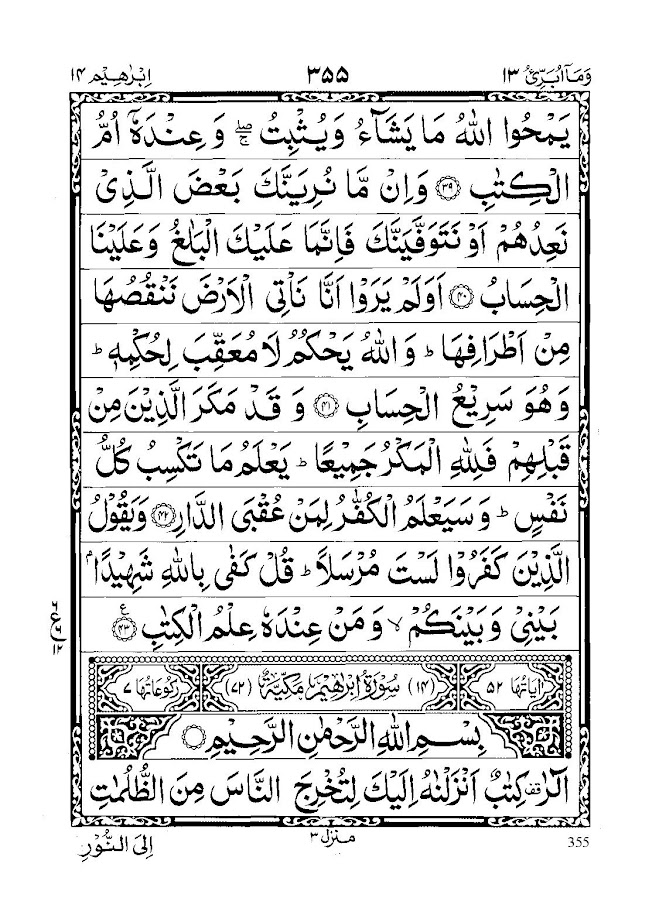 وَمَآ اُبَرِّئُ ١٣ ٣٥٥ اِبْرٰهِيْم ١٤
يَمْحُوا اللّٰهُ مَا يَشَآءُ وَيُثْبِتُ ۖۚ وَعِنْدَهٗۤ اُمُّ
الْكِتٰبِ ۝٣٩ وَاِنْ مَّا نُرِيَنَّكَ بَعْضَ الَّذِىْ
نَعِدُهُمْ اَوْ نَتَوَفَّيَنَّكَ فَاِنَّمَا عَلَيْكَ الْبَلٰغُ وَعَلَيْنَا
الْحِسَابُ ۝٤٠ اَوَلَمْ يَرَوْا اَنَّا نَاْتِى الْاَرْضَ نَنْقُصُهَا
مِنْ اَطْرَافِهَا ؕ وَاللّٰهُ يَحْكُمُ لَا مُعَقِّبَ لِحُكْمِهٖ ؕ
وَهُوَ سَرِيْعُ الْحِسَابِ ۝٤١ وَقَدْ مَكَرَ الَّذِيْنَ مِنْ
قَبْلِهِمْ فَلِلّٰهِ الْمَكْرُ جَمِيْعًا ؕ يَعْلَمُ مَا تَكْسِبُ كُلُّ
نَفْسٍ ؕ وَسَيَعْلَمُ الْكُفّٰرُ لِمَنْ عُقْبَى الدَّارِ ۝٤٢ وَيَقُوْلُ
الَّذِيْنَ كَفَرُوْا لَسْتَ مُرْسَلًا ؕ قُلْ كَفٰى بِاللّٰهِ شَهِيْدًاۢ
بَيْنِىْ وَبَيْنَكُمْ ۙ وَمَنْ عِنْدَهٗ عِلْمُ الْكِتٰبِ ۝٤٣ ع
٦ ع ٦ ١٢
اٰيَاتُهَا ٥٢ (١٤) سُوْرَةُ اِبْرٰهِيْمَ مَكِّيَّةٌ (٧٢) رُكُوْعَاتُهَا ٧
بِسْمِ اللّٰهِ الرَّحْمٰنِ الرَّحِيْمِ ۝
الٓرٰ ۫ قف كِتٰبٌ اَنْزَلْنٰهُ اِلَيْكَ لِتُخْرِجَ النَّاسَ مِنَ الظُّلُمٰتِ
355 منزل ٣ اِلَى النُّوْرِ